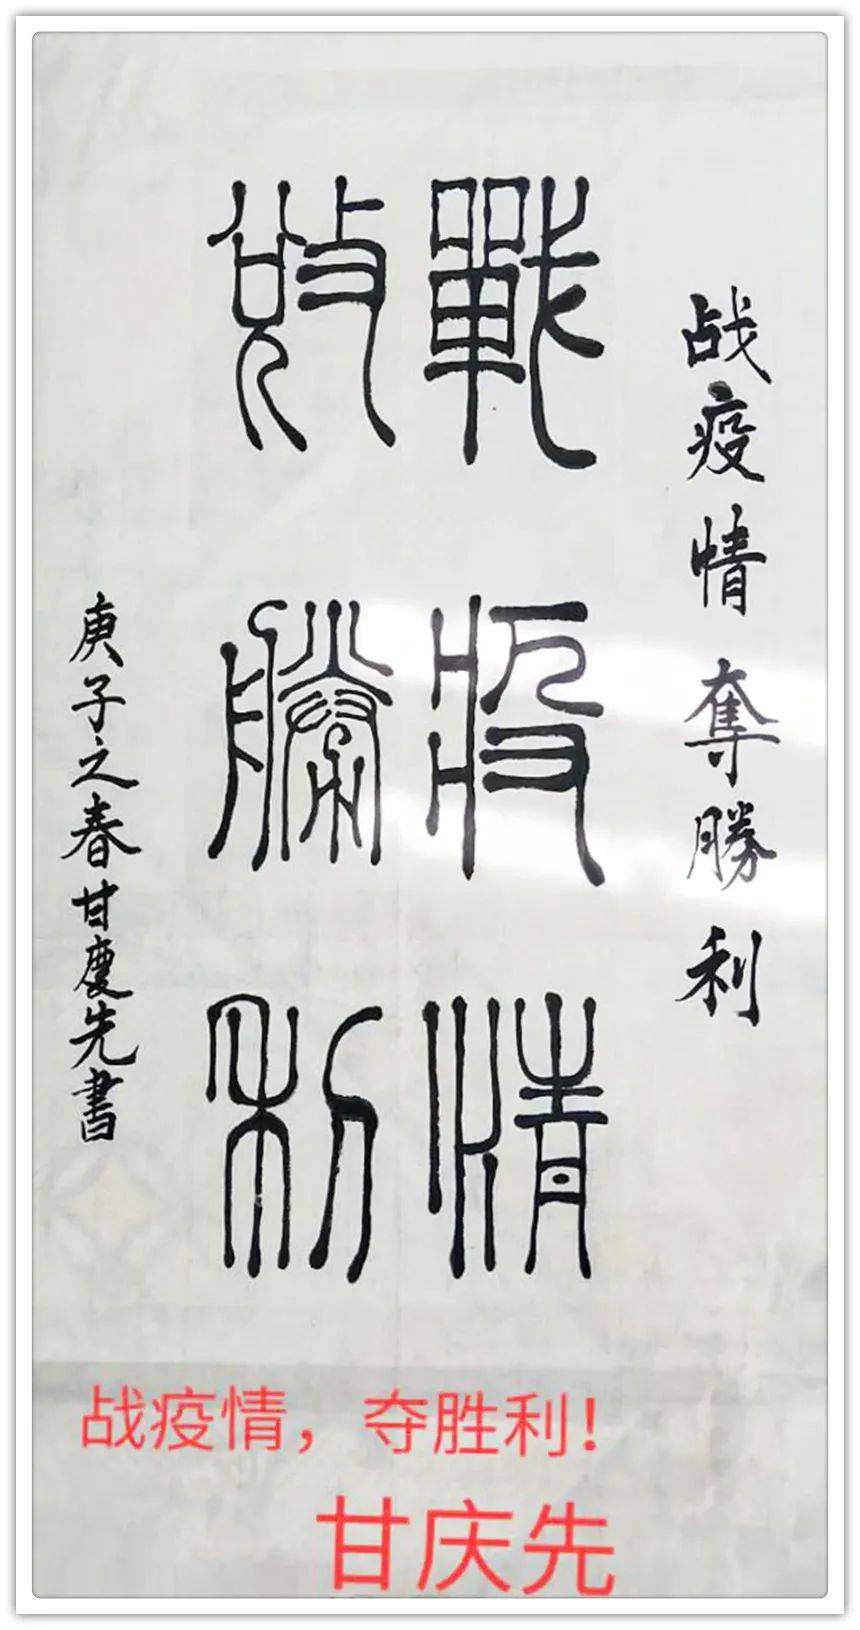 战疫情奪勝利
戰疫情
敚勝利
庚子之春甘慶先書
战疫情，夺胜利！
甘庆先